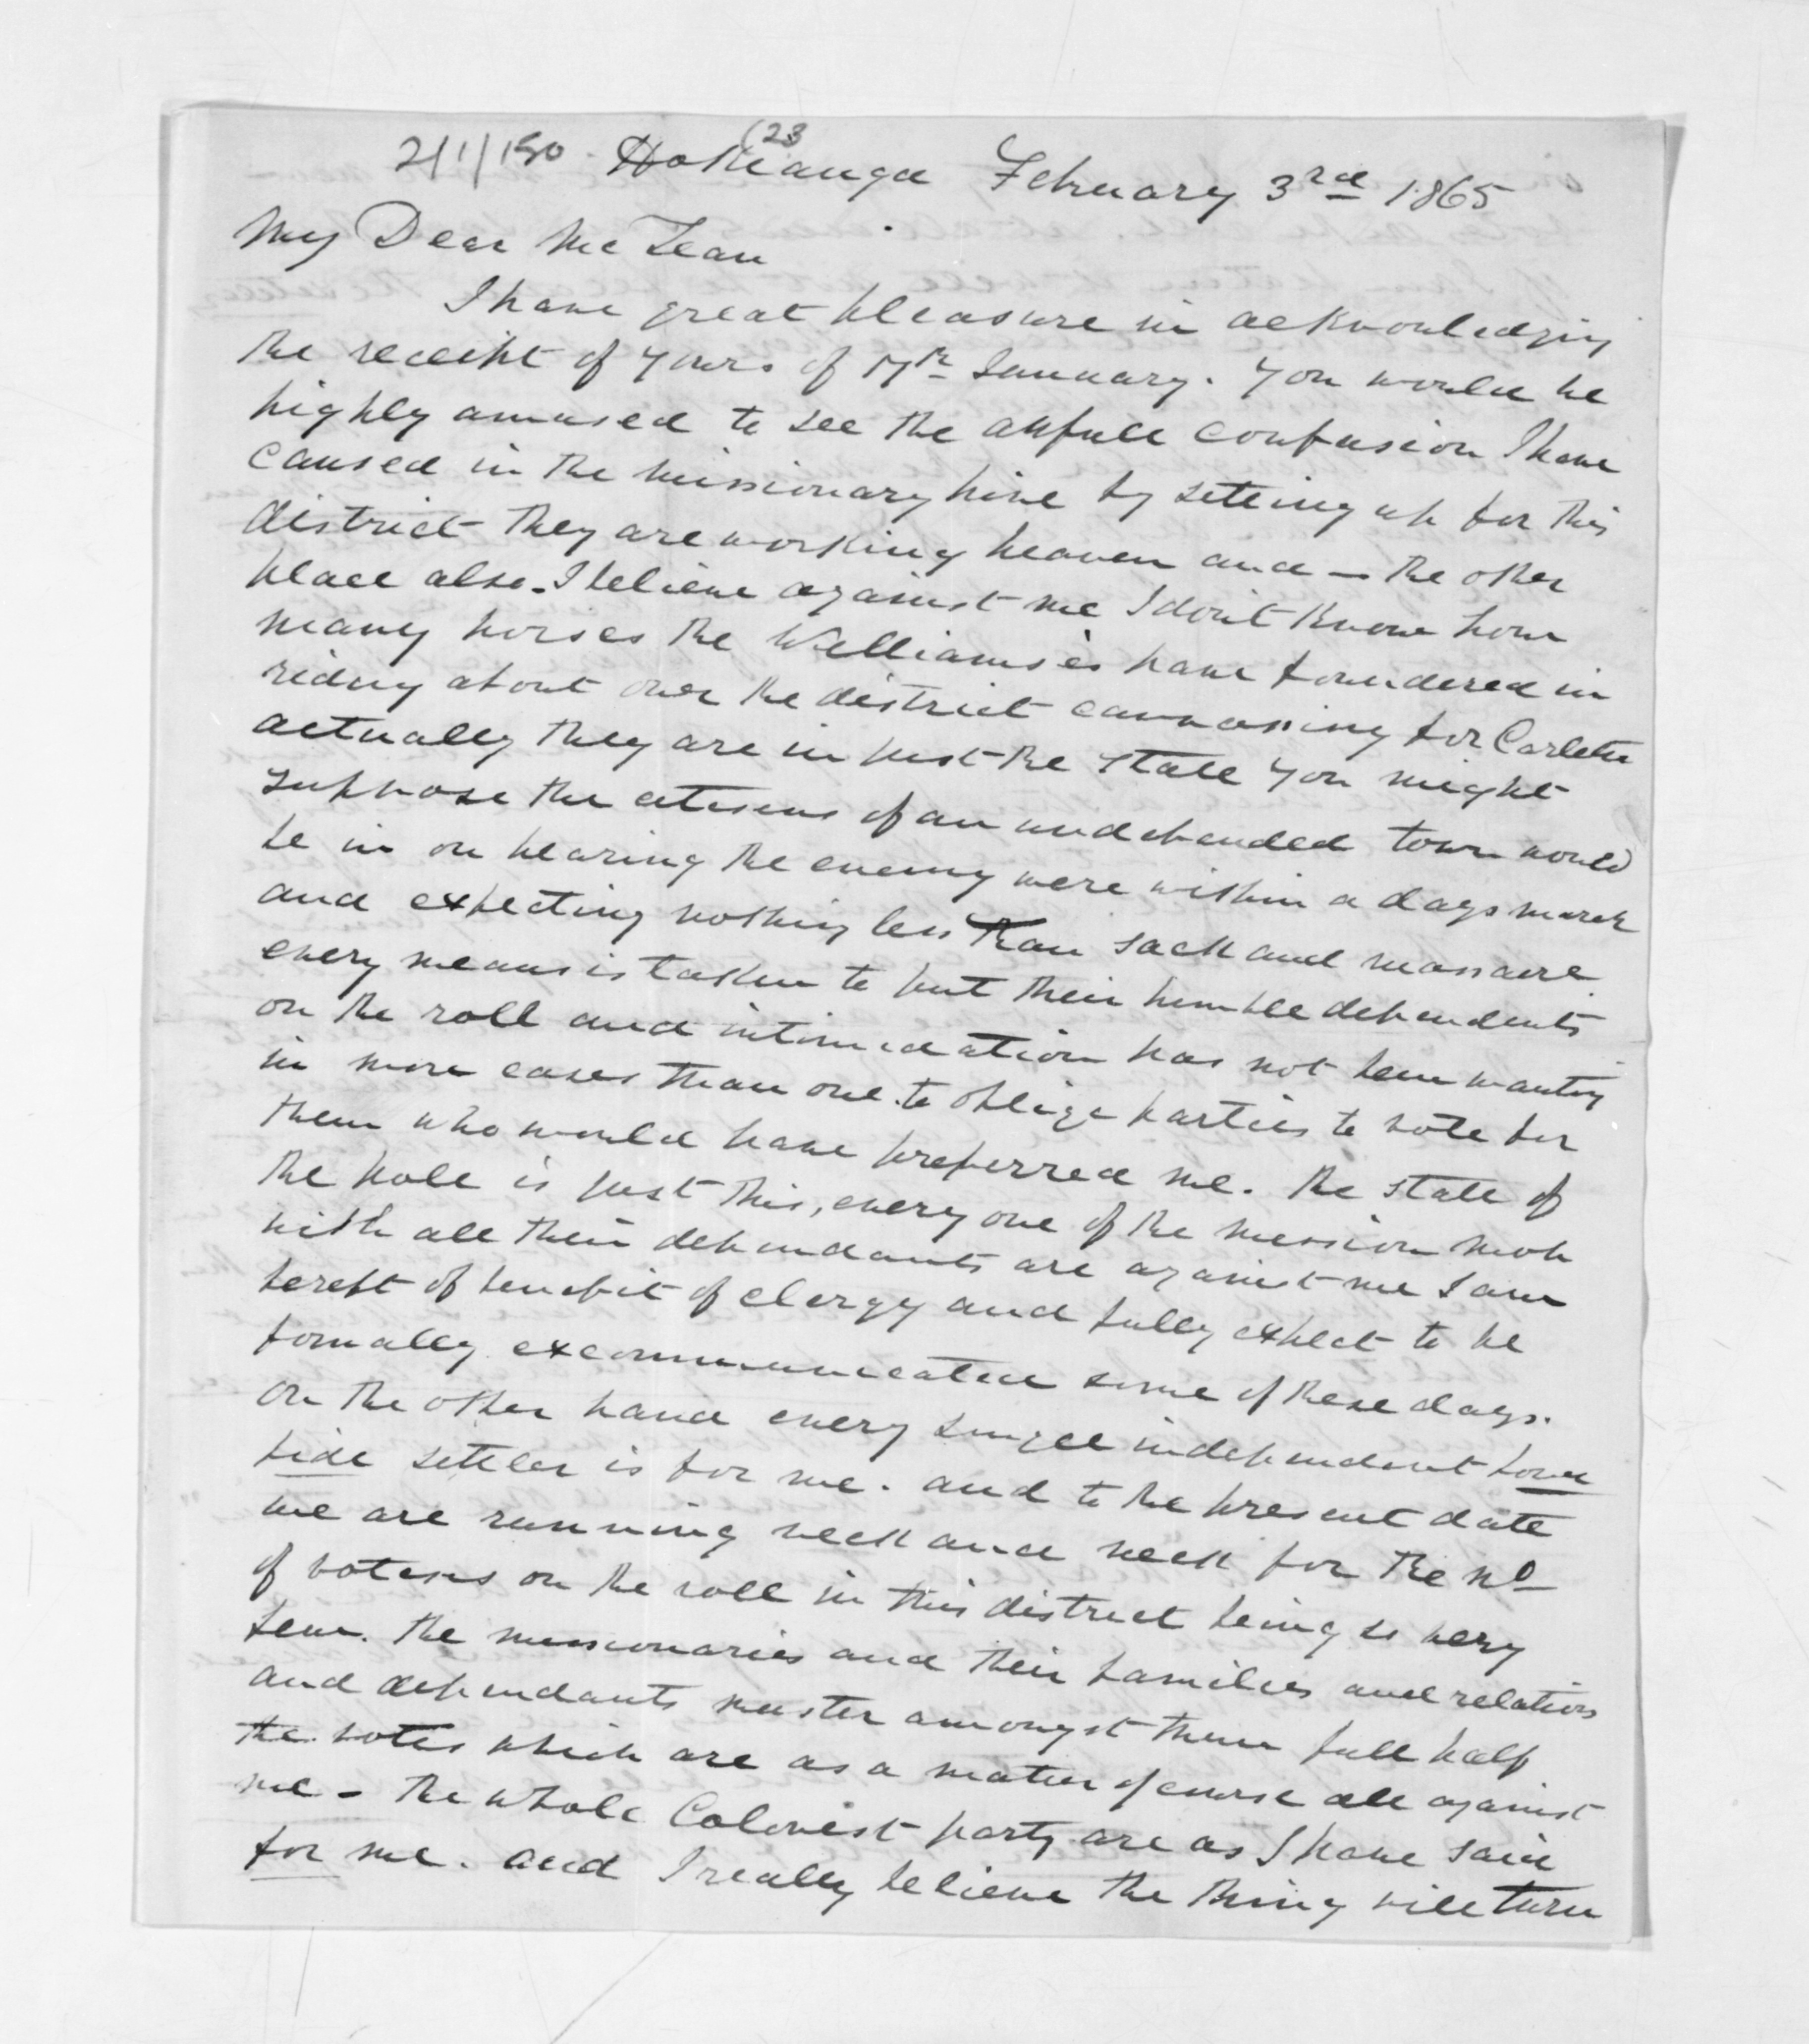 2/1/150 (23
Hokianga February 3rd 1865
My Dear McLean
I have great pleasure in acknowledging
the receipt of yours of 17th January. You would be
highly amused to see the awfull confusion I have
caused in the missionary hive by setting up for this
district they are working heaven and — the other
place also. I believe against me I dont know how
many horses the Williamses have foundered in
riding about over the district canvassing for Carleton
actually they are in just the state you might
suppose the citesens of an undefended town would
be in on hearing the enemy were within a days march
and expecting nothing less than sack and massacre
every means is taken to put their humble dependents
on the roll and intimidation has not been wanting
in more cases than one to oblige parties to vote for
them who would have preferred me. the state of
the pole is just this, every one of the mission mob
with all their dependants are against me I am
bereft of benefit of clergy and fully expect to be
formally excommunicated some of these days.
On the other hand every single independent bona
fide settler is for me. and to the present date
we are running neck and neck for the No
of voters on the roll in this district being so very
few. the missionaries and their families and relations
and dependants muster amongst them full half
the votes which are as a matter of course all against
me – the whole Colonist party are as I have said
for me. and I really believe the thing will turn